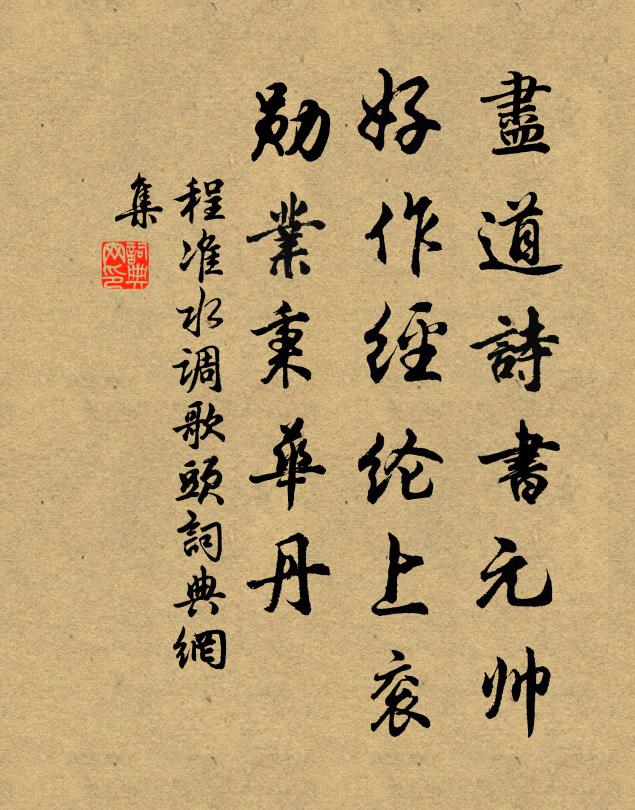 盡道詩書元帅
好作經纶上衮
勋業秉華丹
程准水调歌頭詞典網
集
詞典网印